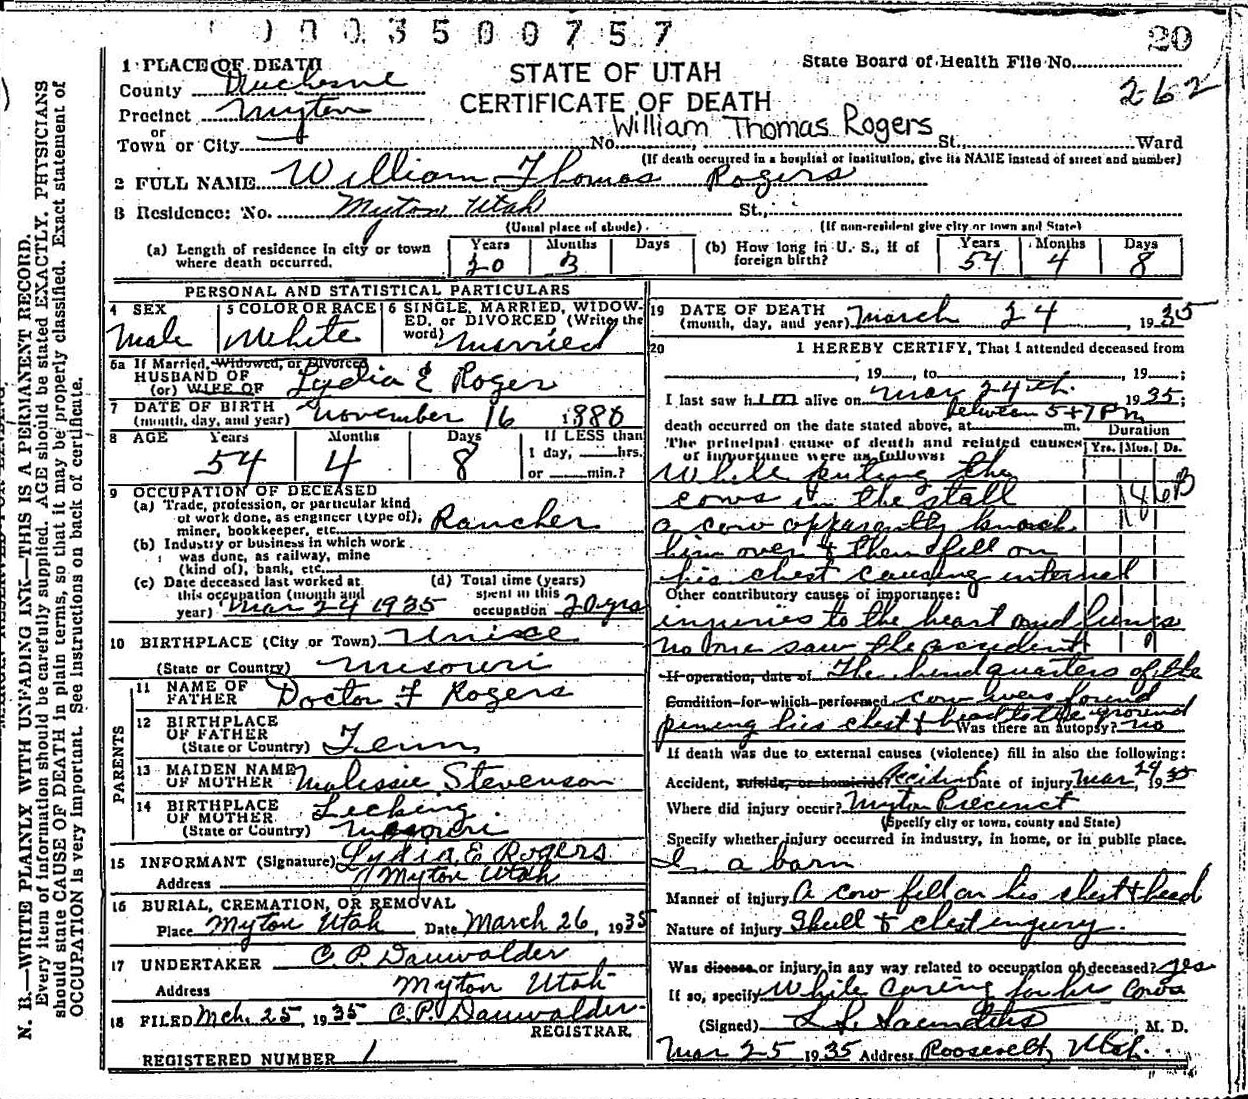 0 0 0 3 5 0 0 7 5 7
20
1 PLACE OF DEATH
County Duchesne
STATE OF UTAH
State Board of Health File No.
262
Precinct Myton
CERTIFICATE OF DEATH
or
William Thomas Rogers
Town or City No. St. Ward
(If death occurred in a hospital or institution, give its NAME instead of street and number)
2 FULL NAME William Thomas Rogers
3 Residence: No. Myton Utah St.,
(Usual place of abode) (If non-resident give city or town and State)
(a) Length of residence in city or town where death occurred. Years 20 Months 3 Days
(b) How long in U. S., if of foreign birth? Years 54 Months 4 Days 8
PERSONAL AND STATISTICAL PARTICULARS
4 SEX Male
5 COLOR OR RACE White
6 SINGLE, MARRIED, WIDOWED, or DIVORCED (Write the word) Married
6a If Married, Widowed, or Divorced
HUSBAND OF
(or) WIFE OF Lydia E Roger
7 DATE OF BIRTH
(month, day, and year) November 16 1880
8 AGE Years 54 Months 4 Days 8 If LESS than
1 day, hrs.
or min.?
9 OCCUPATION OF DECEASED
(a) Trade, profession, or particular kind
of work done, as engineer (type of),
miner, bookkeeper, etc. Rancher
(b) Industry or business in which work
was done, as railway, mine
(kind of), bank, etc.
(c) Date deceased last worked at
this occupation (month and
year) Mar 24 1935
(d) Total time (years)
spent in this
occupation 20 yrs
10 BIRTHPLACE (City or Town)
(State or Country) Missouri
PARENTS
11 NAME OF
FATHER Doctor F Rogers
12 BIRTHPLACE
OF FATHER
(State or Country) Tenn
13 MAIDEN NAME
OF MOTHER Malissie Stevenson
14 BIRTHPLACE
OF MOTHER Lecking
(State or Country) Missouri
15 INFORMANT (Signature) Lydia E Rogers
Address Myton Utah
16 BURIAL, CREMATION, OR REMOVAL
Place Myton Utah Date March 26, 1935
17 UNDERTAKER C. P. Dauwalder
Address Myton Utah
18 FILED Mch. 25, 1935 C. P. Dauwalder
REGISTRAR.
REGISTERED NUMBER 1
19 DATE OF DEATH
(month, day, and year) March 24, 1935
20 I HEREBY CERTIFY, That I attended deceased from
, 19 , to , 19 ;
I last saw him alive on Mar 24th 1935;
between 5 + 7 Pm
death occurred on the date stated above, at m.
Duration
The principal cause of death and related causes
of importance were as follows:
Yrs. Mos. Ds.
While puting the
cows in the stall
a cow apparently knock
him over & then fell on
his chest causing internal
Other contributory causes of importance:
injuries to the heart and lungs
no one saw the accident
If operation, date of The hind quarters of the
Condition for which performed cow was found
pining his chest & head to the ground
Was there an autopsy? no
If death was due to external causes (violence) fill in also the following:
Accident, suicide, or homicide? Accident Date of injury Mar 24, 1935
Where did injury occur? Myton Precinct
(Specify city or town, county and State)
Specify whether injury occurred in industry, in home, or in public place.
In a barn
Manner of injury A cow fell on his chest & head
Nature of injury Skull & chest injury.
Was disease or injury in any way related to occupation of deceased? yes
If so, specify While caring for his cows
(Signed) , M. D.
Mar 25 1935 Address Roosevelt, Utah.
N. B.—WRITE PLAINLY WITH UNFADING INK—THIS IS A PERMANENT RECORD.
Every item of information should be carefully supplied. AGE should be stated EXACTLY. PHYSICIANS
should state CAUSE OF DEATH in plain terms, so that it may be properly classified. Exact statement of
OCCUPATION is very important. See instructions on back of certificate.